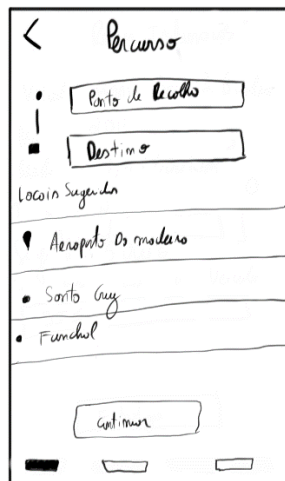 Percurso
Ponto de Recolha
Destino
Locais Sugeridos
Aeroporto Da madeira
Santa Cruz
Funchal
continuar